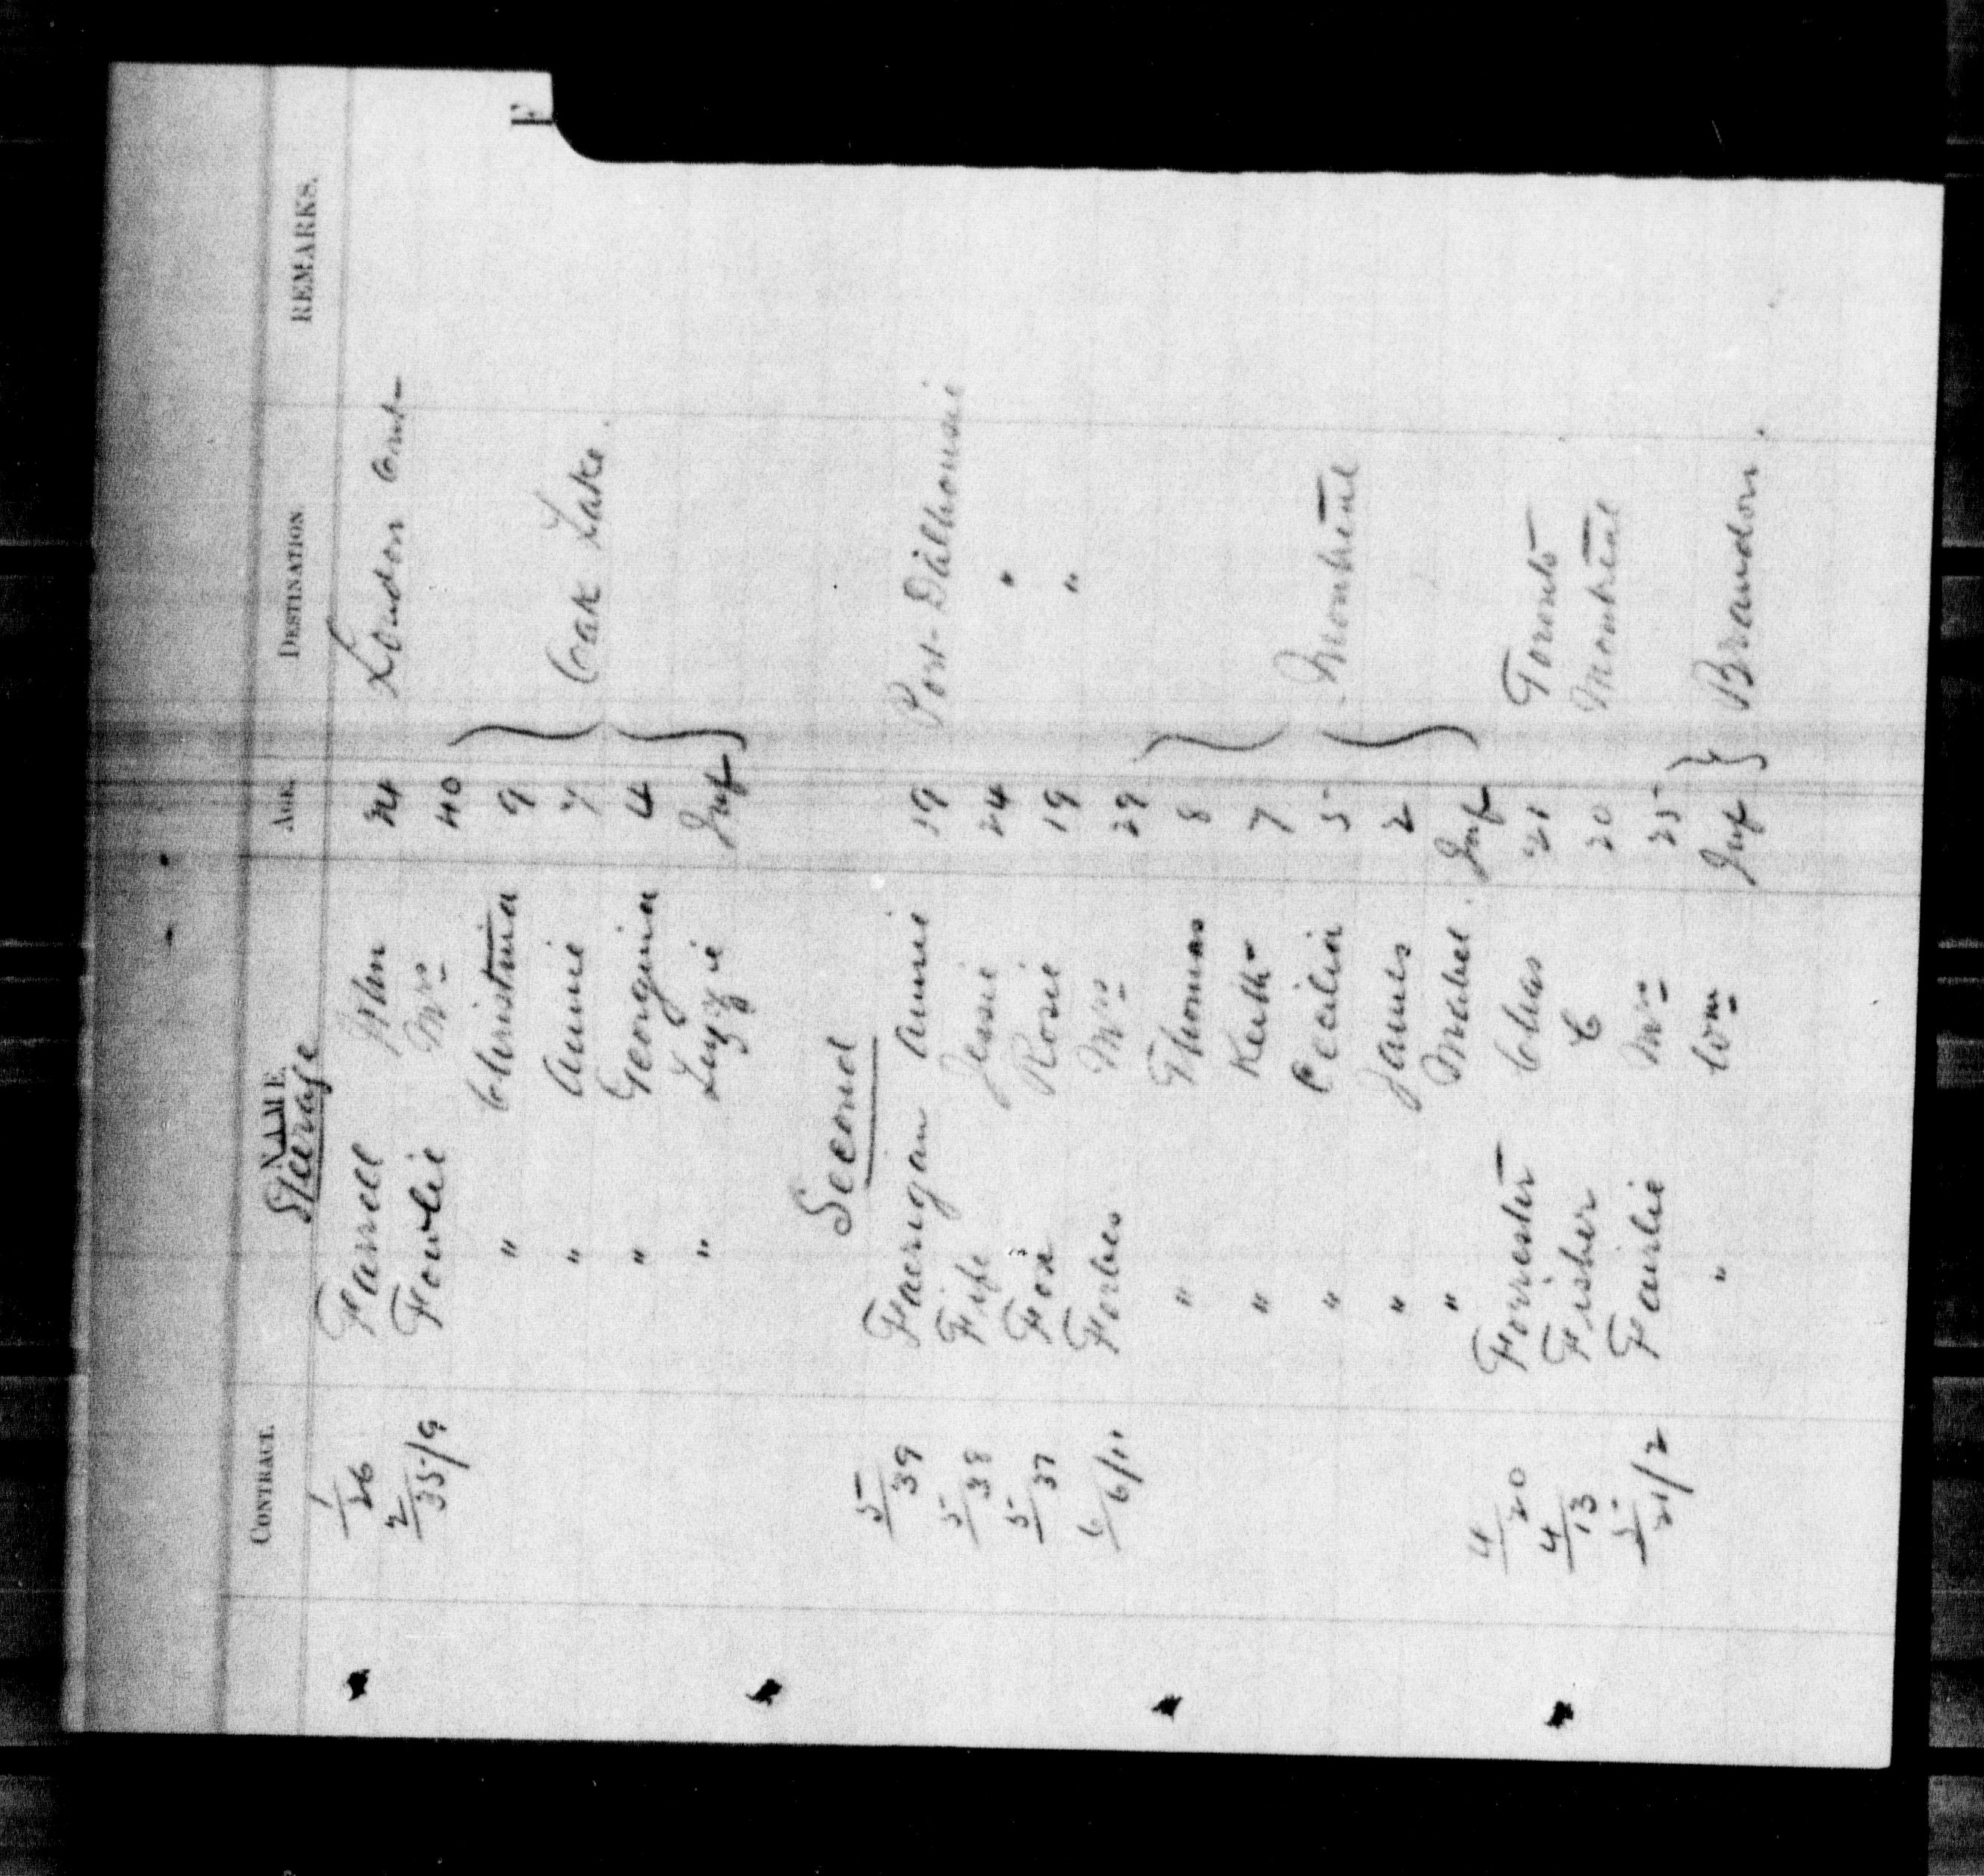 F
CONTRACT. NAME. AGE. DESTINATION REMARKS.
Steerage
1/26 Farrell John 24 London Ont
2/35/9 Fowlie Mrs 40
" Christina 9
" Annie 7 Oak Lake.
" Georgina 4
" Lizzie Inf
Second
5/39 Annie 19 Port Dalhousie
5/38 Fife Jessie 24 "
5/37 Fox Rosie 19 "
6/6/11 Forbes Mrs 29
" Thomas 8
" Keith 7
" Cecilia 5 Montreal
" James 2
" Mabel. Inf
4/20 Forrester Chas 21 Toronto
4/13 Fisher C 20 Montreal
5/21/2 Fairlie Mrs 25
" Wm Inf Brandon.